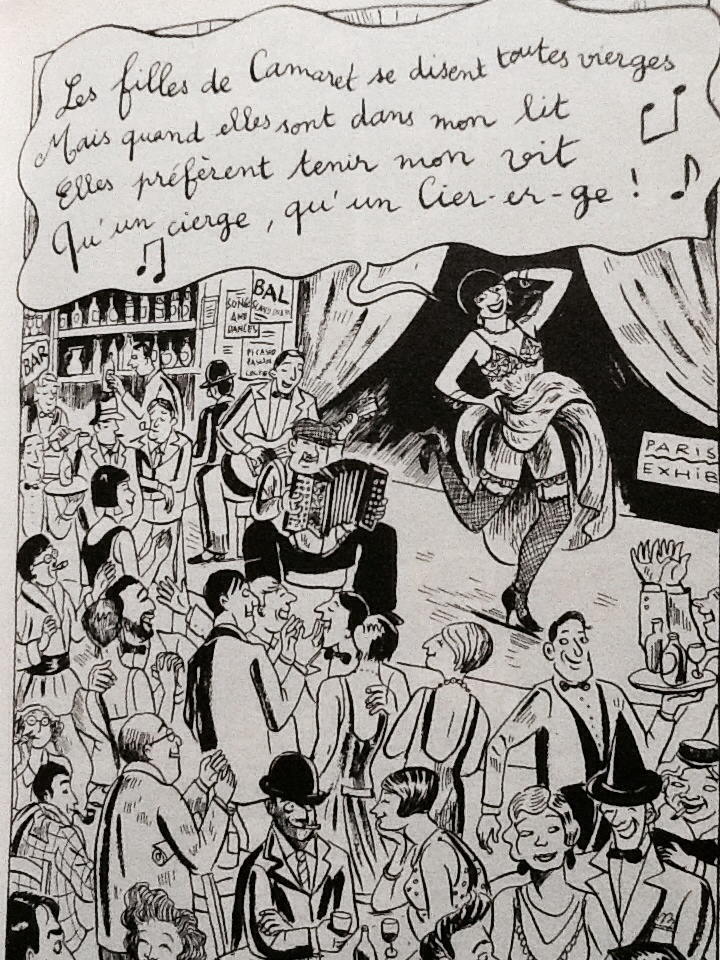 Les filles de Camaret se disent toutes vierges
Mais quand elles sont dans mon lit
Elles préfèrent tenir mon vit
Qu'un cierge, qu'un Cier-er-ge !
BAL
SONGS
AND
DANCES
BAR
PARIS
EXHIB